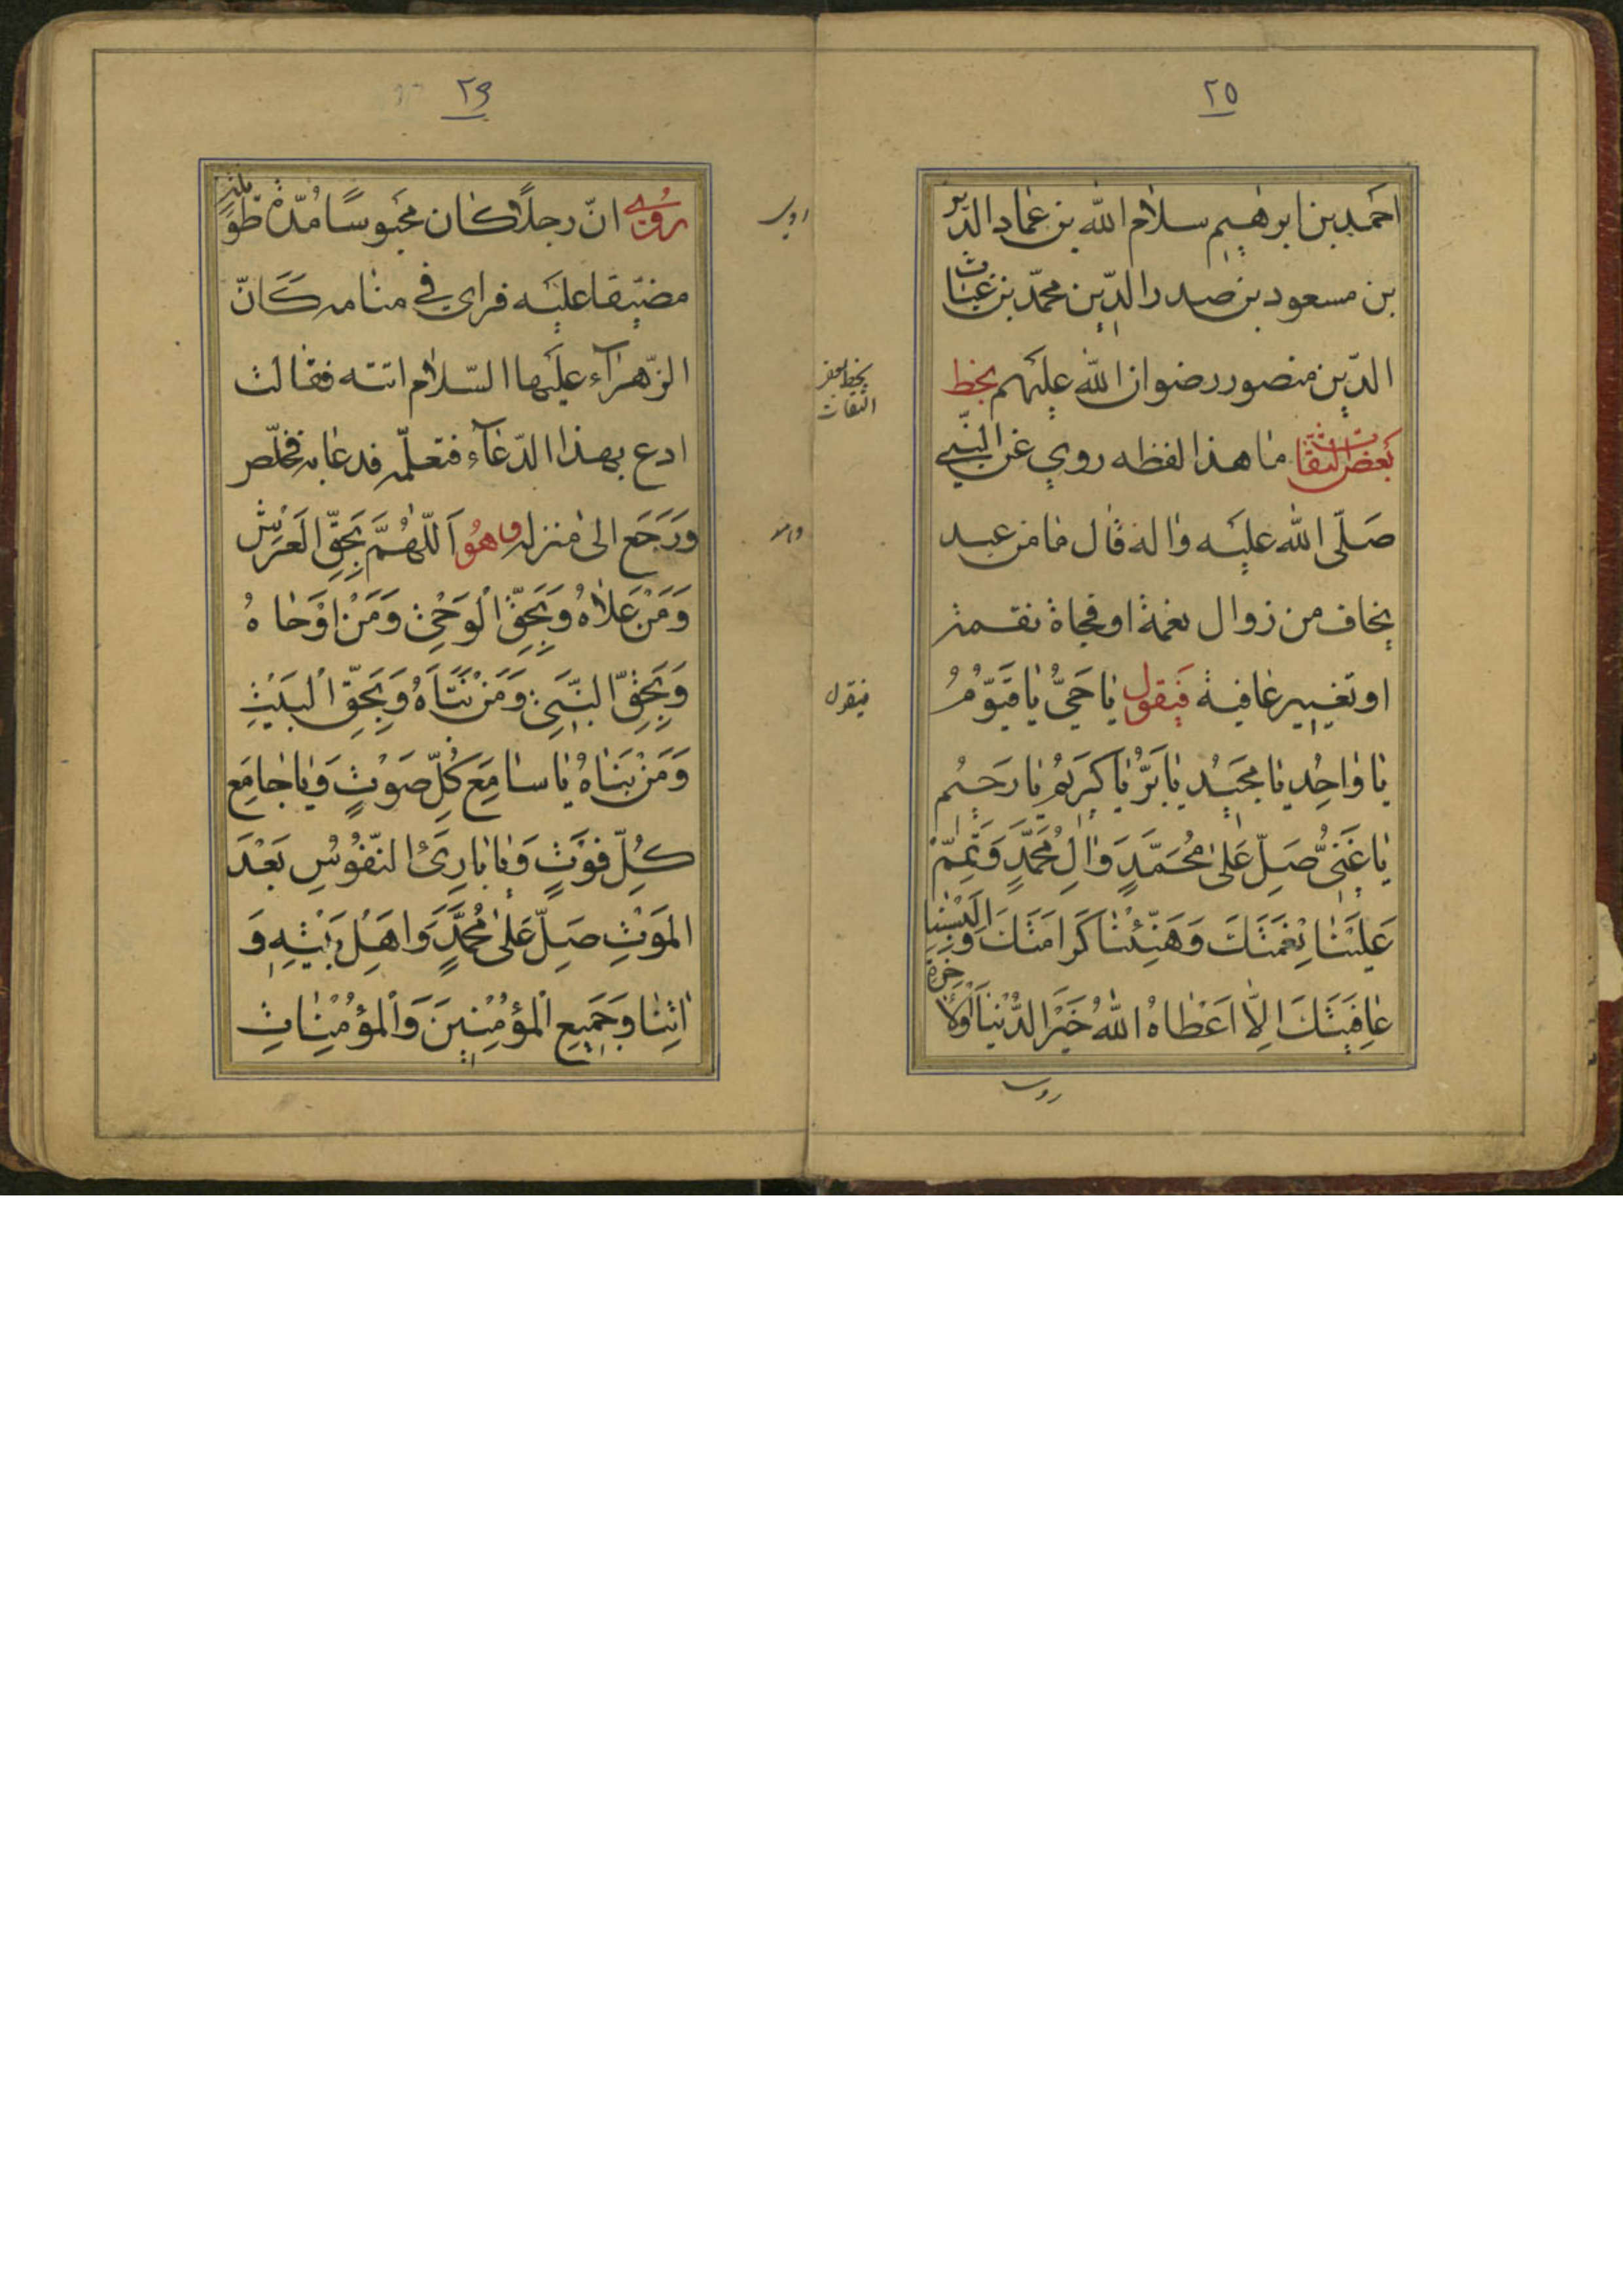 ٢٥
احمد بن ابرهيم سلام الله بن عماد الدين
بن مسعود بن صدر الدين محمد بن غياث
الدين منصور رضوان الله عليهم بخط
بعض الثقات ما هذا لفظه روي عن النبي
صلى الله عليه واله قال ما من عبد
يخاف من زوال نعمة او فجاة نقمة
او تغيير عافية فيقول يا حَيُّ يا قَيّومُ
يا واحِدُ يا مجَيدُ يا بَرُّ يا كَريمُ يا رَحيمُ
يا غَنِيُّ صَلِّ عَلى مُحَمَّدٍ وَالِ مُحَمَّدٍ وَتَمِّمْ
عَلَيْنا نِعْمَتَكَ وَهَنِّئْنا كَرامَتَكَ وَاَلْبِسْنا
عافِيَتَكَ اِلّا اَعْطاهُ اللهُ خَيْرَ الدُّنْيا وَالاخرة
بخط بعض
الثقات
فيقول
روي
٢٦
رُوي انّ رجلاً كان محَبوسًا مُدّة طويلة
مضيّقا عليه فراي في منامه كَانّ
الزّهرآء عليها السّلام اتته فقالت
ادع بهذا الدّعآء فتعلّمه فدعا به فخلّص
ورَجَع الى منزله وهُو اَللّهُمَّ بِحَقِّ العَرْشِ
وَمَنْ عَلاهُ وَبِحَقِّ الْوَحْيِ وَمَنْ اوَْحاهُ
وَبِحَقِّ النَّبِيِّ وَمَنْ نَبَّاَهُ وَبِحَقِّ الْبَيْتِ
وَمَنْ بَناهُ يا سامِعَ كُلِّ صَوْتٍ وَيا جامِعَ
كُلِّ فَوْتٍ وَيا بارِئَ النّفُوُسِ بَعْدَ
المَوْتِ صَلِّ عَلى مُحَمَّدٍ وَاَهْلِ بَيْتِهِ وَ
اتِنا وَجَميعِ الْمؤْمِنينَ وَالْمؤْمِناتِ